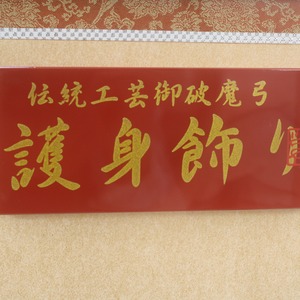 伝統工芸御破魔弓
護身飾り